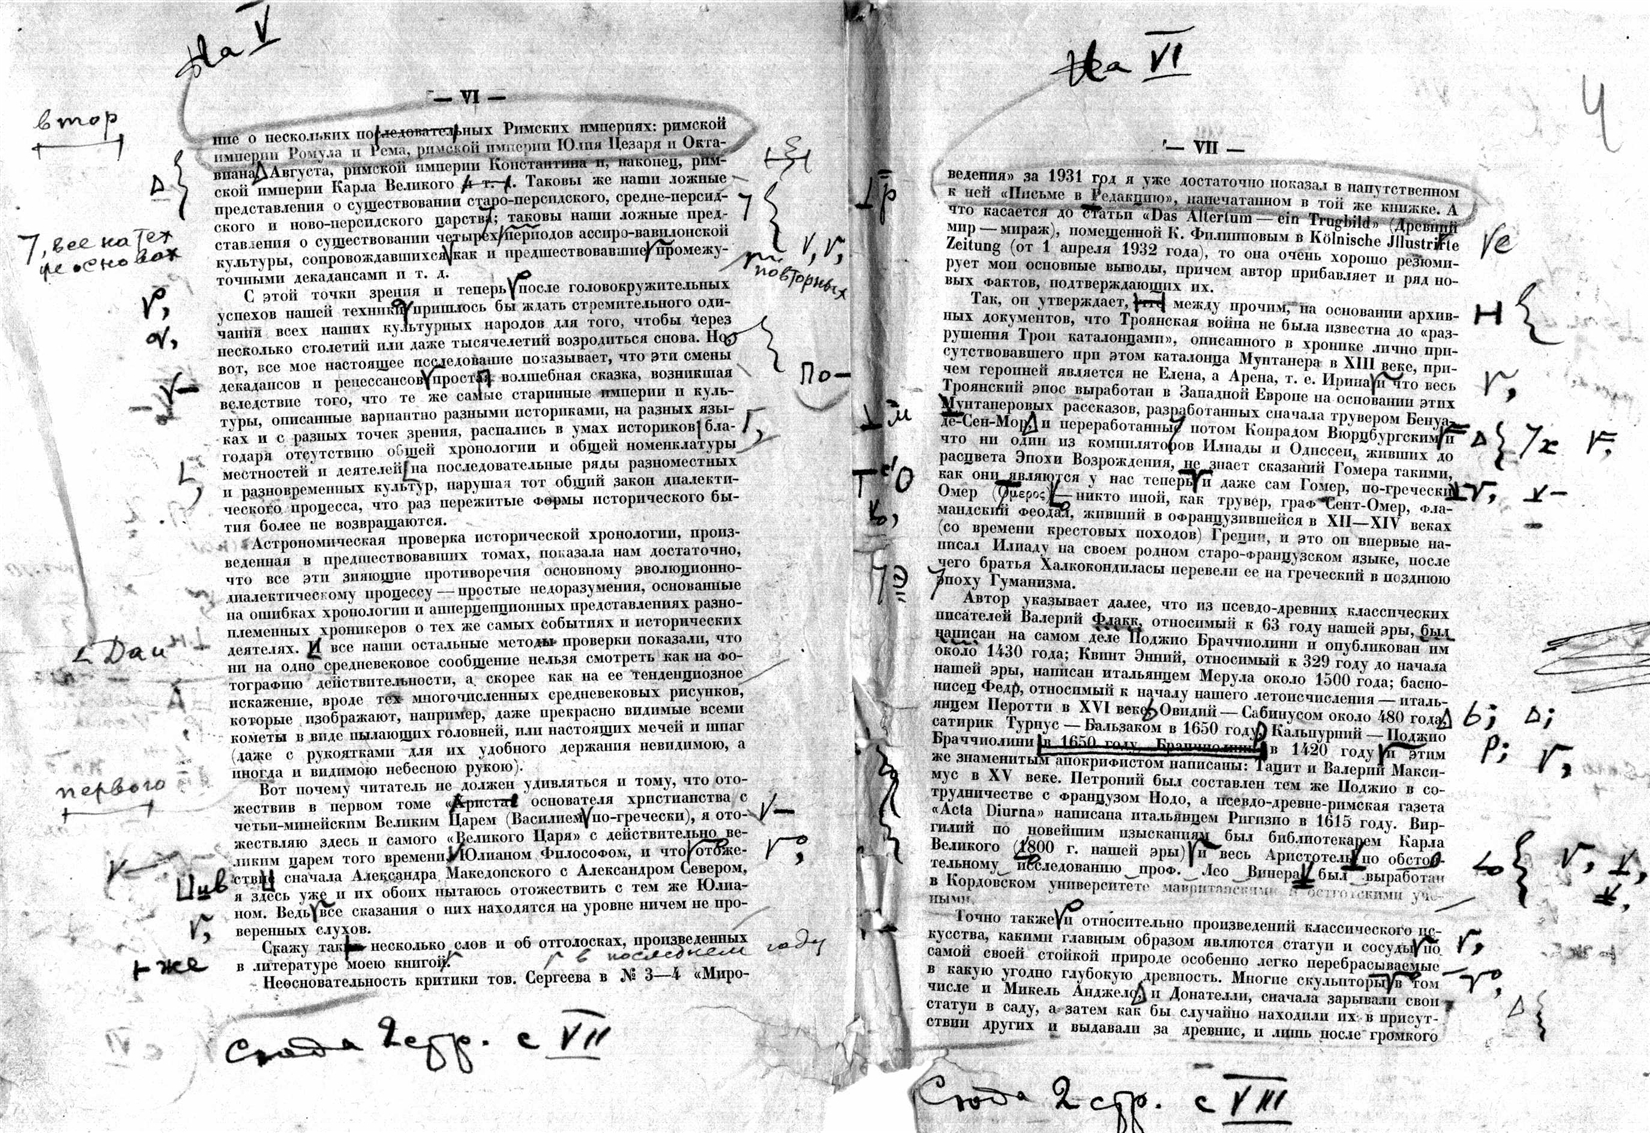 На V
— VI —
втор
ние о нескольких последовательных Римских империях: римской
империи Ромула и Рема, римской империи Юлия Цезаря и Окта-
виана Августа, римской империи Константина и, наконец, рим-
ской империи Карла Великого и т. д. Таковы же наши ложные
представления о существовании старо-персидского, средне-персид-
ского и ново-персидского царств; таковы наши ложные пред-
ставления о существовании четырех периодов ассиро-вавилонской
культуры, сопровождавшихся как и предшествовавшие промежу-
точными декадансами и т. д.
, все на тех
же основах
повторных
С этой точки зрения и теперь после головокружительных
успехов нашей техники пришлось бы ждать стремительного оди-
чания всех наших культурных народов для того, чтобы через
несколько столетий или даже тысячелетий возродиться снова. Но
вот, все мое настоящее исследование показывает, что эти смены
декадансов и ренессансов простая волшебная сказка, возникшая
вследствие того, что те же самые старинные империи и куль-
туры, описанные вариантно разными историками, на разных язы-
ках и с разных точек зрения, распались в умах историков бла-
годаря отсутствию общей хронологии и общей номенклатуры
местностей и деятелей на последовательные ряды разноместных
и разновременных культур, нарушая тот общий закон диалекти-
ческого процесса, что раз пережитые формы исторического бы-
тия более не возвращаются.
По—
Астрономическая проверка исторической хронологии, произ-
веденная в предшествовавших томах, показала нам достаточно,
что все эти зияющие противоречия основному эволюционно-
диалектическому процессу — простые недоразумения, основанные
на ошибках хронологии и апперцепционных представлениях разно-
племенных хроникеров о тех же самых событиях и исторических
деятелях. И все наши остальные методы проверки показали, что
ни на одно средневековое сообщение нельзя смотреть как на фо-
тографию действительности, а скорее как на ее тенденциозное
искажение, вроде тех многочисленных средневековых рисунков,
которые изображают, например, даже прекрасно видимые всеми
кометы в виде пылающих головней, или настоящих мечей и шпаг
(даже с рукоятками для их удобного держания невидимою, а
иногда и видимою небесною рукою).
Да и
первого
Вот почему читатель не должен удивляться и тому, что ото-
жествив в первом томе «Христа» основателя христианства с
четьи-минейским Великим Царем (Василием по-гречески), я ото-
жествляю здесь и самого «Великого Царя» с действительно ве-
ликим царем того времени Юлианом Философом, и что отоже-
ствив сначала Александра Македонского с Александром Севером,
я здесь уже и их обоих пытаюсь отожествить с тем же Юлиа-
ном. Ведь все сказания о них находятся на уровне ничем не про-
веренных слухов.
Скажу так несколько слов и об отголосках, произведенных
в литературе моею книгой
в последнем году
Неосновательность критики тов. Сергеева в № 3—4 «Миро-
же
Сюда 2 стр. с VII
На VI
4
— VII —
ведения» за 1931 год я уже достаточно показал в напутственном
к ней «Письме в Редакцию», напечатанном в той же книжке. А
что касается до статьи «Das Altertum — ein Trugbild» (Древний
мир — мираж), помещенной К. Филипповым в Kölnische Jllustrirte
Zeitung (от 1 апреля 1932 года), то она очень хорошо резюми-
рует мои основные выводы, причем автор прибавляет и ряд но-
вых фактов, подтверждающих их.
Так, он утверждает, что между прочим, на основании архив-
ных документов, что Троянская война не была известна до «раз-
рушения Трои каталонцами», описанного в хронике лично при-
сутствовавшего при этом каталонца Мунтанера в XIII веке, при-
чем героиней является не Елена, а Арена, т. е. Ирина и что весь
Троянский эпос выработан в Западной Европе на основании этих
Мунтанеровых рассказов, разработанных сначала трувером Бенуа-
де-Сен-Мор и переработанных потом Конрадом Вюрцбургским и
что ни один из компиляторов Илиады и Одиссеи, живших до
расцвета Эпохи Возрождения, не знает сказаний Гомера такими,
как они являются у нас теперь и даже сам Гомер, по-гречески
Омер (Ὅμερος) — никто иной, как трувер, граф Сент-Омер, фла-
мандский феодал, живший в офранцузившейся в XII—XIV веках
(со времени крестовых походов) Греции, и это он впервые на-
писал Илиаду на своем родном старо-французском языке, после
чего братья Халкокондиласы перевели ее на греческий в позднюю
эпоху Гуманизма.
Автор указывает далее, что из псевдо-древних классических
писателей Валерий Флакк, относимый к 63 году нашей эры, был
написан на самом деле Поджио Браччиолини и опубликован им
около 1430 года; Квинт Энний, относимый к 329 году до начала
нашей эры, написан итальянцем Мерула около 1500 года; басно-
писец Федр, относимый к началу нашего летоисчисления — италь-
янцем Перотти в XVI веке Овидий — Сабинусом около 480 года
сатирик Турнус — Бальзаком в 1650 году Кальпурний — Поджио
Браччиолини в 1650 году Браччиолини в 1420 году и этим
же знаменитым апокрифистом написаны: Тацит и Валерий Макси-
мус в XV веке. Петроний был составлен тем же Поджио в со-
трудничестве с французом Нодо, а псевдо-древне-римская газета
«Acta Diurna» написана итальянцем Ригизио в 1615 году. Вир-
гилий по новейшим изысканиям был библиотекарем Карла
Великого (1800 г. нашей эры) и весь Аристотель по обстоя-
тельному исследованию проф. Лео Винера был выработан
в Кордовском университете мавританскими и остготскими уче-
ными.
Точно также и относительно произведений классического ис-
кусства, какими главным образом являются статуи и сосуды по
самой своей стойкой природе особенно легко перебрасываемые
в какую угодно глубокую древность. Многие скульпторы в том
числе и Микель Анджело и Донателли, сначала зарывали свои
статуи в саду, а затем как бы случайно находили их в присут-
ствии других и выдавали за древние, и лишь после громкого
Сюда 2 стр. с VIII